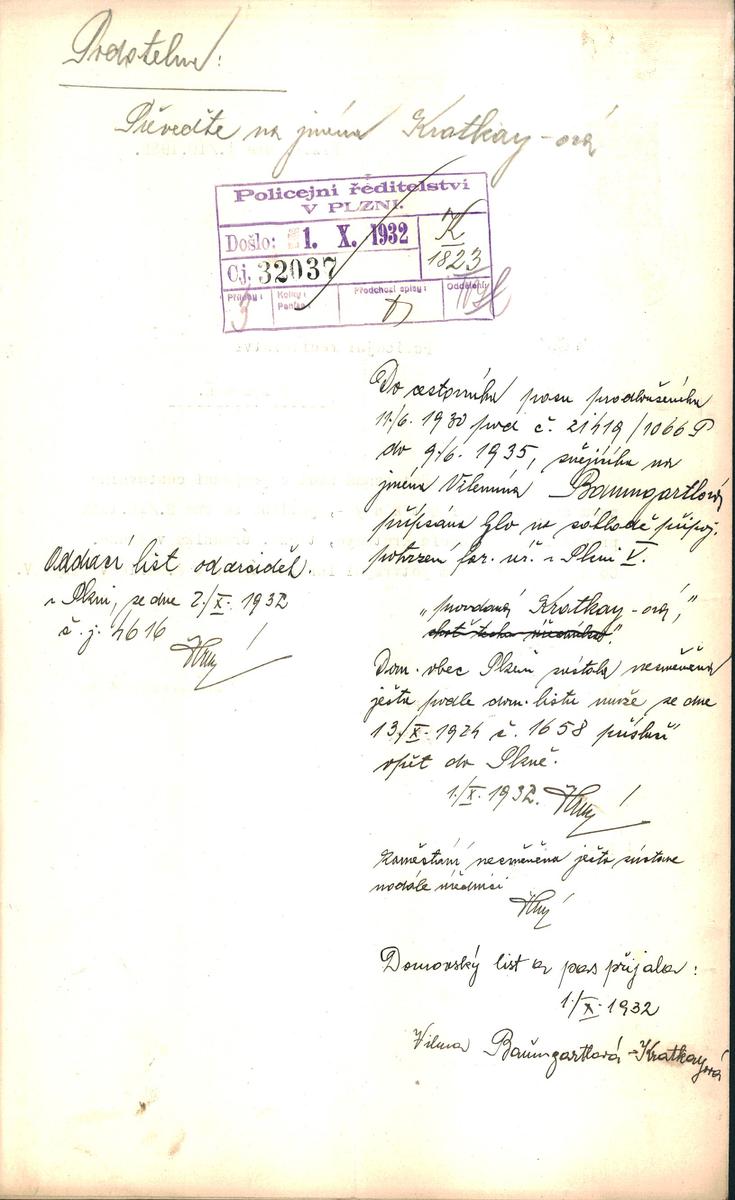 Podatelna:
Převeďte na jméno Kratkay-ová
Policejní ředitelství
V PLZNI.
Došlo: 1. X. 1932
K
1823
Čj. 32037
Přílohy: 3
Kolky:
Peníze:
Předchozí spisy:
Oddělení:
Do cestovního pasu prodlouženého
11./6. 1930 pod č. 21419/1066 P
do 9./6. 1935, znějícího na
jméno Vilemína Baumgartlová
připsáno bylo na základě připoj.
potvrzení far. úř. v Plzni V.
„provdaná Kratkay-ová,"
Dom. obec Plzeň zůstala nezměněna
ježto podle dom. listu muže ze dne
13./X. 1924 č. 1658 přísluší
opět do Plzně.
1./X. 1932.
Oddací list
v Plzni, ze dne 2./X. 1932
č. j. 4616
Zaměstnání nezměněno ježto zůstane
nadále úřednicí
Domovský list a pas přijala:
1./X. 1932
Vilma Baumgartlová-Kratkayová